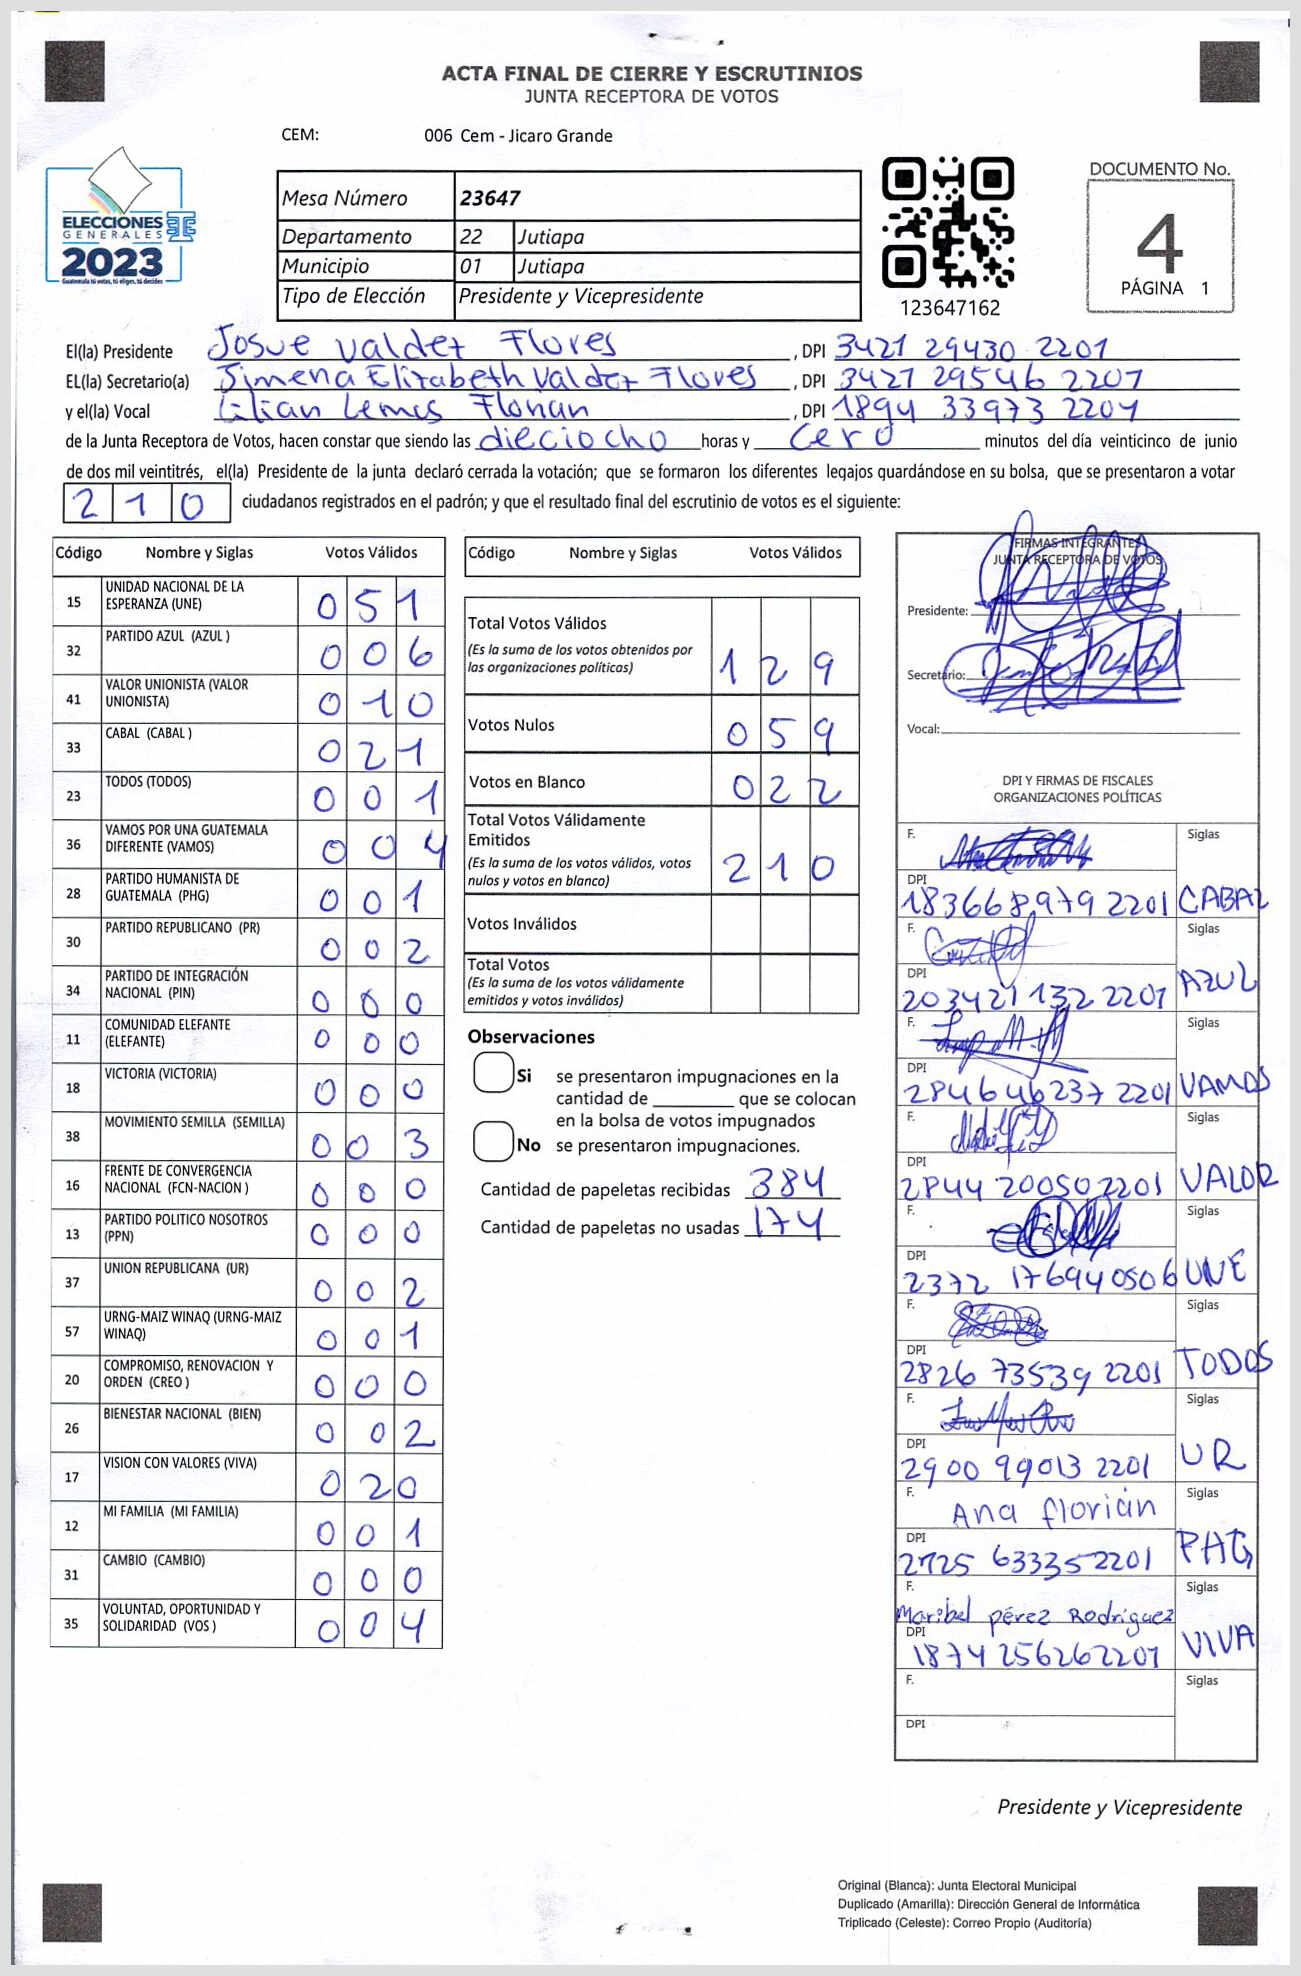 ACTA FINAL DE CIERRE Y ESCRUTINIOS
JUNTA RECEPTORA DE VOTOS
CEM: 006 Cem - Jicaro Grande
ELECCIONES
GENERALES
2023
Guatemala tú votas, tú eliges, tú decides
Mesa Número 23647
Departamento 22 Jutiapa
Municipio 01 Jutiapa
Tipo de Elección Presidente y Vicepresidente
123647162
DOCUMENTO No.
4
PÁGINA 1
El(la) Presidente Josue Valdez Flores, DPI 3421 29430 2201
EL(la) Secretario(a) Jimena Elizabeth Valdez Flores, DPI 3421 29546 2201
y el(la) Vocal Lilian Lemus Florian, DPI 1894 33973 2204
de la Junta Receptora de Votos, hacen constar que siendo las dieciocho horas y cero minutos del día veinticinco de junio
de dos mil veintitrés, el(la) Presidente de la junta declaró cerrada la votación; que se formaron los diferentes legajos quardándose en su bolsa, que se presentaron a votar
210 ciudadanos registrados en el padrón; y que el resultado final del escrutinio de votos es el siguiente:
Código Nombre y Siglas Votos Válidos
15 UNIDAD NACIONAL DE LA ESPERANZA (UNE) 051
32 PARTIDO AZUL (AZUL ) 006
41 VALOR UNIONISTA (VALOR UNIONISTA) 010
33 CABAL (CABAL ) 021
23 TODOS (TODOS) 001
36 VAMOS POR UNA GUATEMALA DIFERENTE (VAMOS) 004
28 PARTIDO HUMANISTA DE GUATEMALA (PHG) 001
30 PARTIDO REPUBLICANO (PR) 002
34 PARTIDO DE INTEGRACIÓN NACIONAL (PIN) 000
11 COMUNIDAD ELEFANTE (ELEFANTE) 000
18 VICTORIA (VICTORIA) 000
38 MOVIMIENTO SEMILLA (SEMILLA) 003
16 FRENTE DE CONVERGENCIA NACIONAL (FCN-NACION ) 000
13 PARTIDO POLITICO NOSOTROS (PPN) 000
37 UNION REPUBLICANA (UR) 002
57 URNG-MAIZ WINAQ (URNG-MAIZ WINAQ) 001
20 COMPROMISO, RENOVACION Y ORDEN (CREO ) 000
26 BIENESTAR NACIONAL (BIEN) 002
17 VISION CON VALORES (VIVA) 020
12 MI FAMILIA (MI FAMILIA) 001
31 CAMBIO (CAMBIO) 000
35 VOLUNTAD, OPORTUNIDAD Y SOLIDARIDAD (VOS ) 004
Código Nombre y Siglas Votos Válidos
Total Votos Válidos
(Es la suma de los votos obtenidos por las organizaciones políticas) 129
Votos Nulos 059
Votos en Blanco 022
Total Votos Válidamente Emitidos
(Es la suma de los votos válidos, votos nulos y votos en blanco) 210
Votos Inválidos
Total Votos
(Es la suma de los votos válidamente emitidos y votos inválidos)
Observaciones
Si se presentaron impugnaciones en la
cantidad de ________ que se colocan
en la bolsa de votos impugnados
No se presentaron impugnaciones.
Cantidad de papeletas recibidas 384
Cantidad de papeletas no usadas 174
FIRMAS INTEGRANTES
JUNTA RECEPTORA DE VOTOS
Presidente:
Secretario:
Vocal:
DPI Y FIRMAS DE FISCALES
ORGANIZACIONES POLÍTICAS
F. Siglas
DPI 183668979 2201 CABAL
F. Siglas
DPI 203421132 2201 AZUL
F. Siglas
DPI 284646237 2201 VAMOS
F. Siglas
DPI 2844 20050 2201 VALOR
F. Siglas
DPI 2372 17694 0506 UNE
F. Siglas
DPI 2826 73539 2201 TODOS
F. Siglas
DPI 2900 99013 2201 UR
F. Ana florián Siglas
DPI 2725 63335 2201 PAG
F. Maribel pérez Rodriguez Siglas
DPI 1874 25626 2201 VIVA
F. Siglas
DPI
Presidente y Vicepresidente
Original (Blanca): Junta Electoral Municipal
Duplicado (Amarilla): Dirección General de Informática
Triplicado (Celeste): Correo Propio (Auditoría)